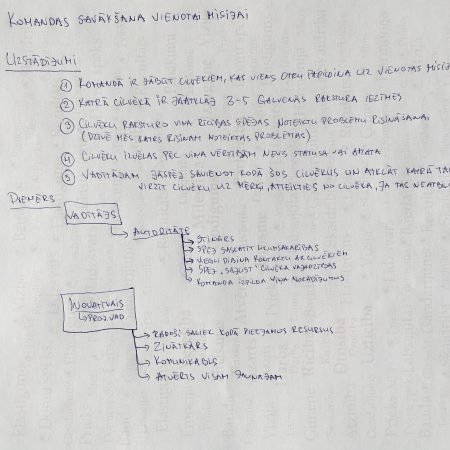 KOMANDAS SAVĀKŠANA VIENOTAI MISIJAI
UZSTĀDĪJUMI
① KOMANDĀ IR JĀBŪT CILVĒKIEM, KAS VIENS OTRU PAPILDINA UZ VIENOTAS MISIJ
② KATRĀ CILVĒKĀ IR JĀATKLĀJ 3-5 GALVENĀS RAKSTURA IEZĪMES
③ CILVĒKU RAKSTURO VIŅA RĪCĪBAS SPĒJAS NOTEIKTU PROBLĒMU RISINĀŠANAI
(DZĪVĒ MĒS KATRS RISINAM NOTEIKTAS PROBLĒMAS)
④ CILVĒKU IZVĒLAS PĒC VIŅA VĒRTĪBĀM NEVIS STATUSA VAI AMATA
⑤ VADĪTĀJAM JĀSPĒJ SAVIENOT KOPĀ ŠOS CILVĒKUS UN ATKLĀT KATRĀ TA
VIRZĪT CILVĒKU UZ MĒRĶI, ATTEIKTIES NO CILVĒKA, JA TAS NEATBIL
PIEMĒRS
VADĪTĀJS
AUTORITĀTE
STINGRS
SPĒJ SASKATĪT LIKUMSAKARĪBAS
VIEGLI DIBINA KONTAKTU AR CILVĒKIEM
SPĒJ "SAJUST" CILVĒKA VAJADZĪBAS
KOMANDA IZPILDA VIŅA NORĀDĪJUMUS
INOVATĪVAIS
PROJ.VAD
RADOŠI SALIEK KOPĀ PIEEJAMOS RESURSUS
ZINĀTKĀRS
KOMUNIKABLS
ATVĒRTS VISAM JAUNAJAM